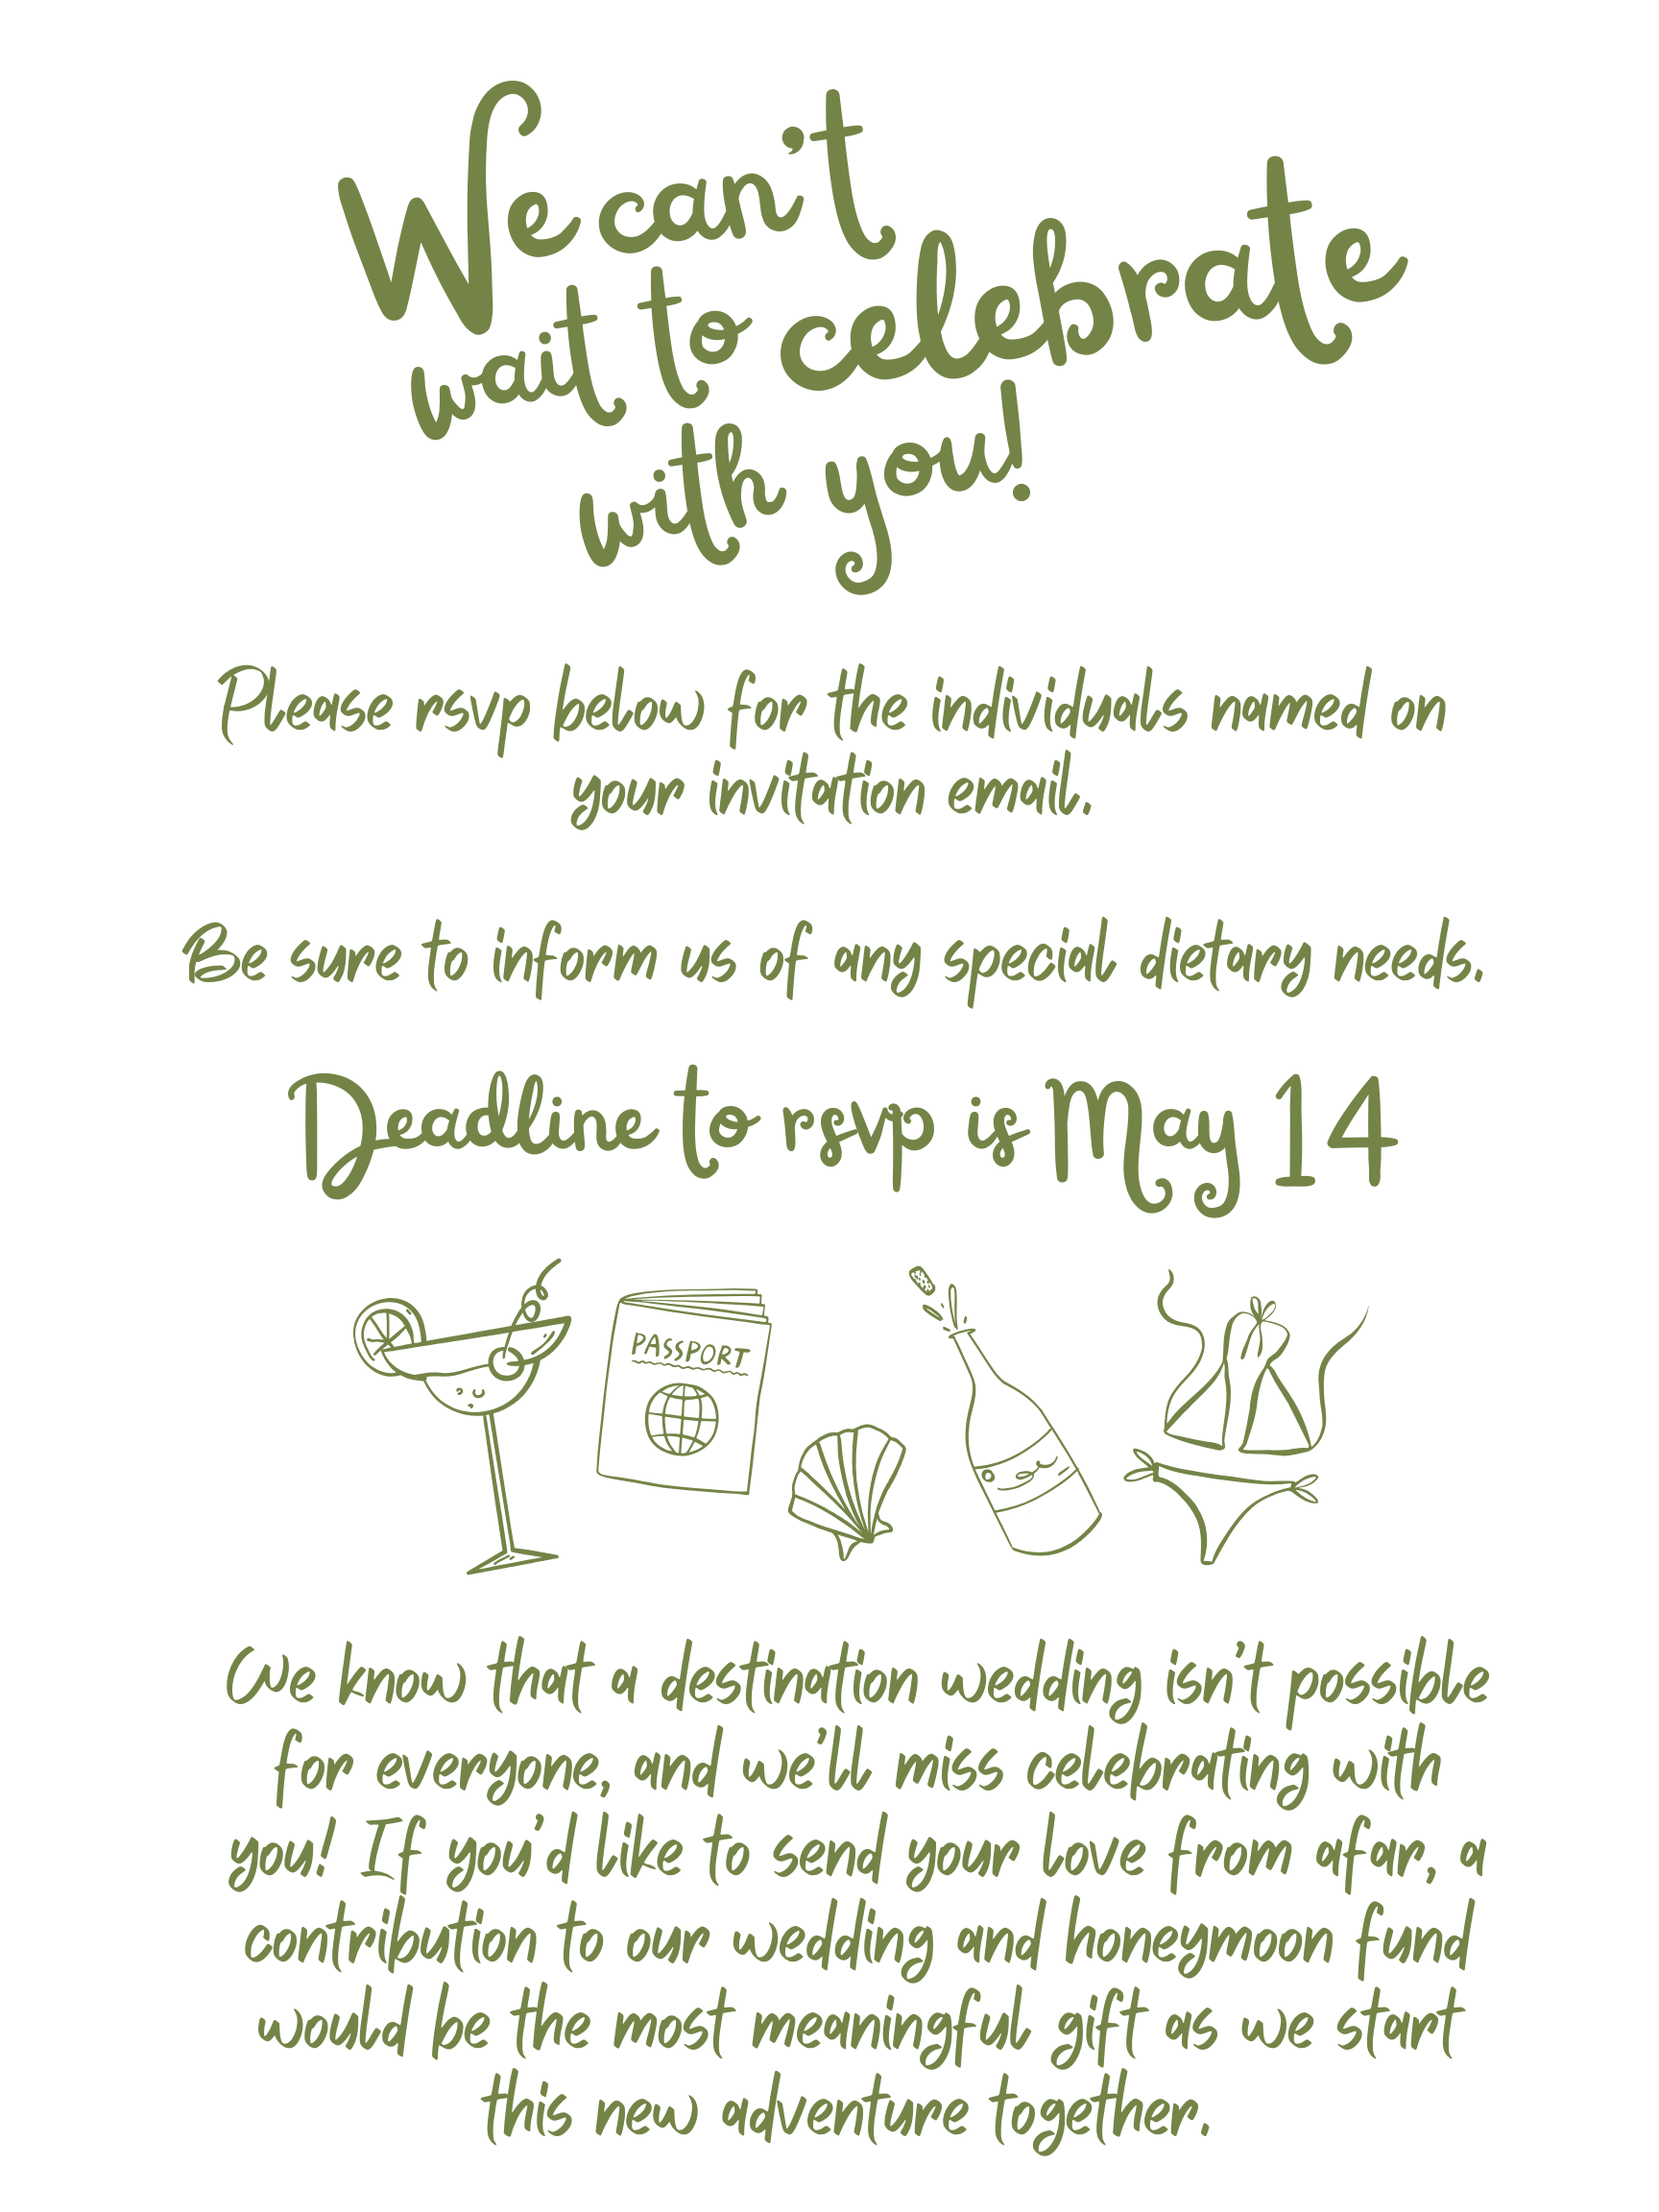 We can't
wait to celebrate
with you!
Please rsvp below for the individuals named on
your invitation email.
Be sure to inform us of any special dietary needs.
Deadline to rsvp is May 14
PASSPORT
We know that a destination wedding isn't possible
for everyone, and we'll miss celebrating with
you! If you'd like to send your love from afar, a
contribution to our wedding and honeymoon fund
would be the most meaningful gift as we start
this new adventure together.